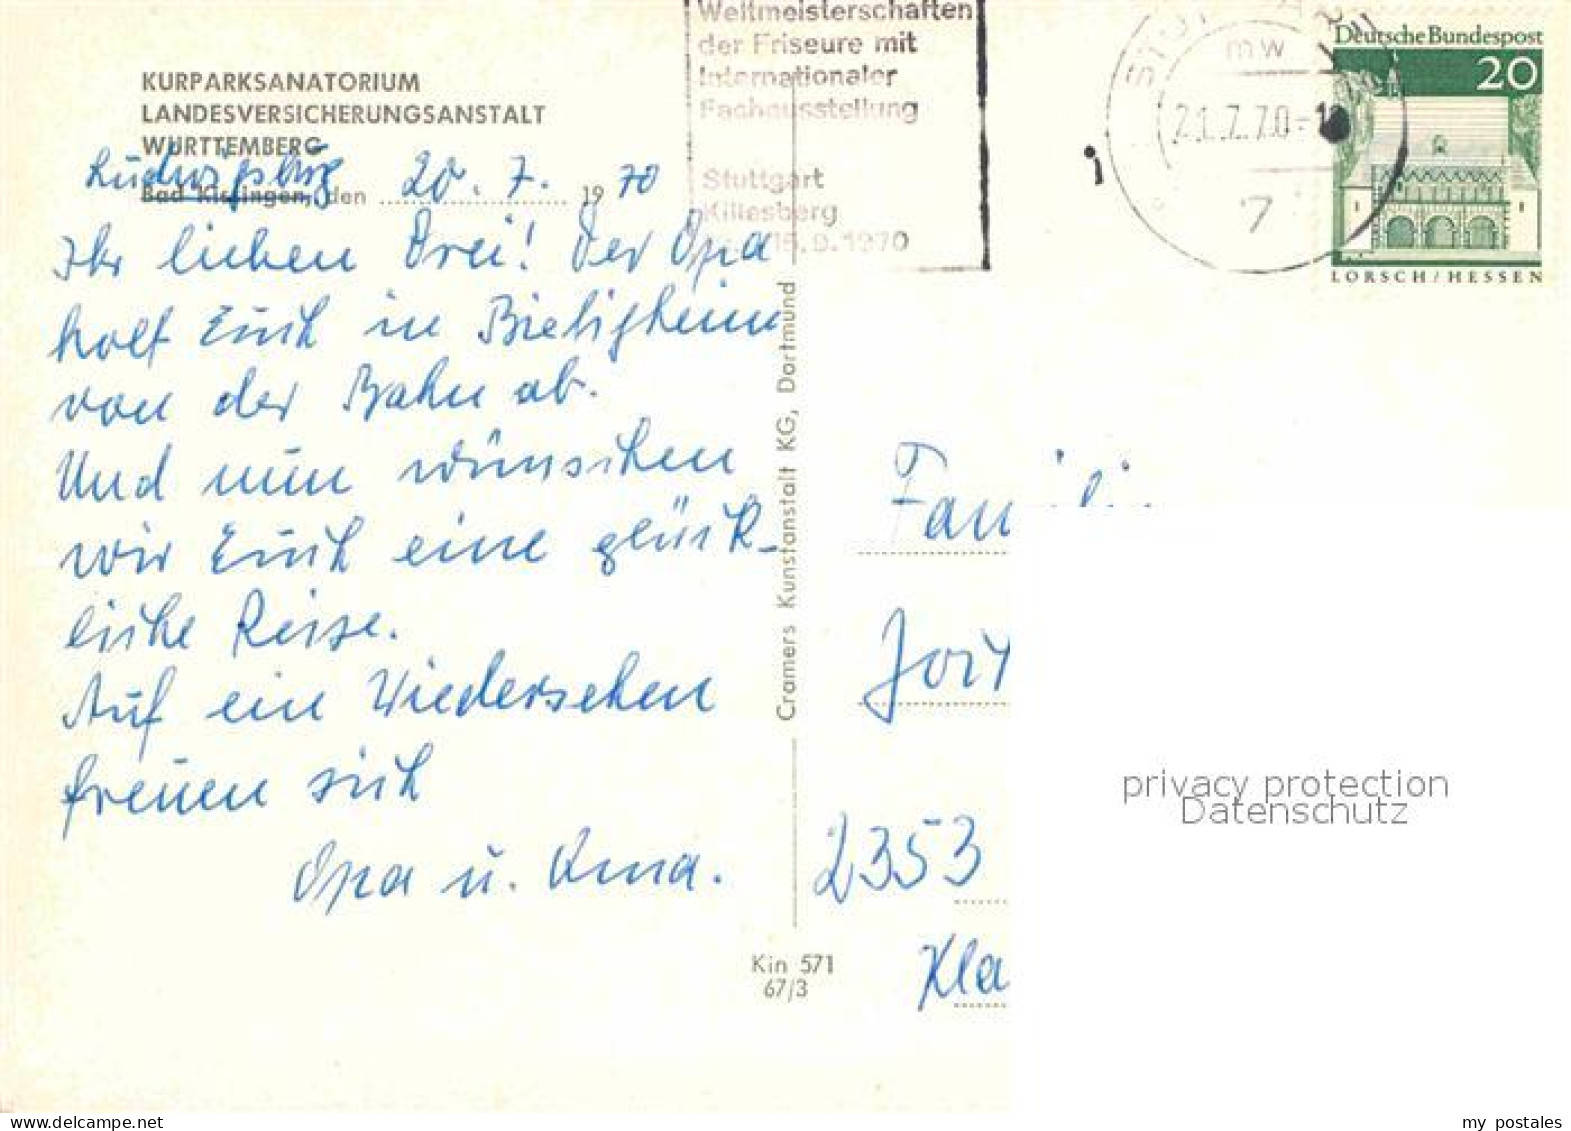 KURPARKSANATORIUM
LANDESVERSICHERUNGSANSTALT
WÜRTTEMBERG
Ludwigsburg 20. 7. 70
Bad Kissingen, den 19
Ihr lieben Drei! Der Opa
holt Euch in Bietigheim
von der Bahn ab.
Und nun wünschen
wir Euch eine glück-
liche Reise.
Auf ein Wiedersehen
freuen sich
Opa u. Oma.
Cramers Kunstanstalt KG, Dortmund
Kin 571
67/3
Weltmeisterschaften
der Friseure mit
Internationaler
Fachausstellung
Stuttgart
Killesberg
15.9.1970
mw
21.7.70-1
7
Deutsche Bundespost
20
LORSCH/HESSEN
2353
Kla
privacy protection
Datenschutz
my postales
www.delcampe.net